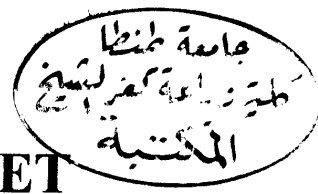 جامعة طنطا
كلية زراعة كفر الشيخ
المكتبة
ET